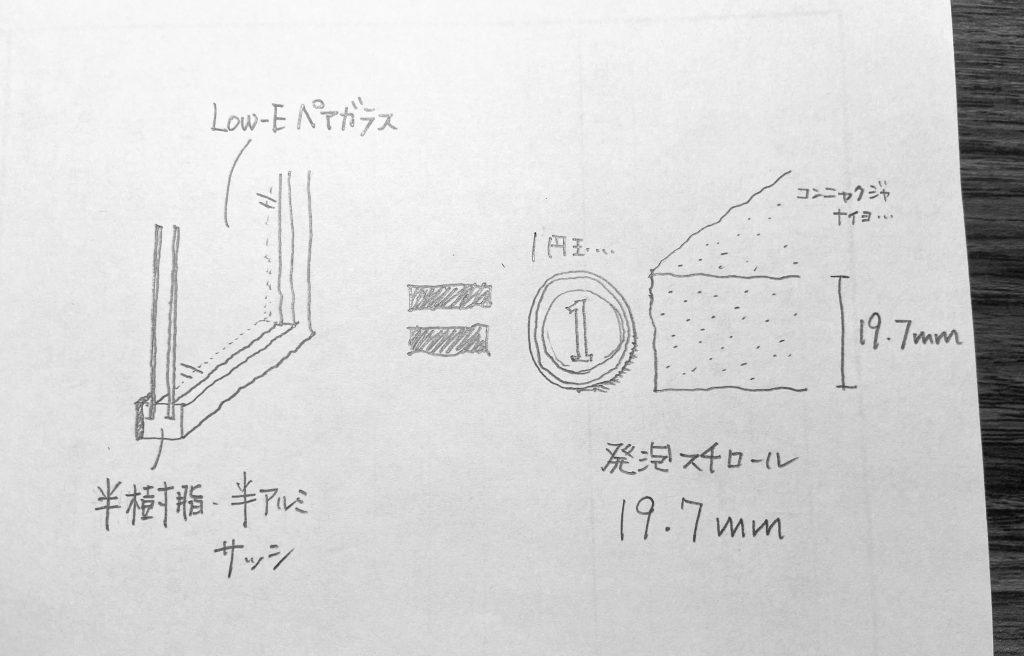 Low-E ペアガラス
コンニャクジャ
ナイヨ…
1円玉…
1
19.7mm
発泡スチロール
19.7mm
半樹脂・半アルミ
サッシ